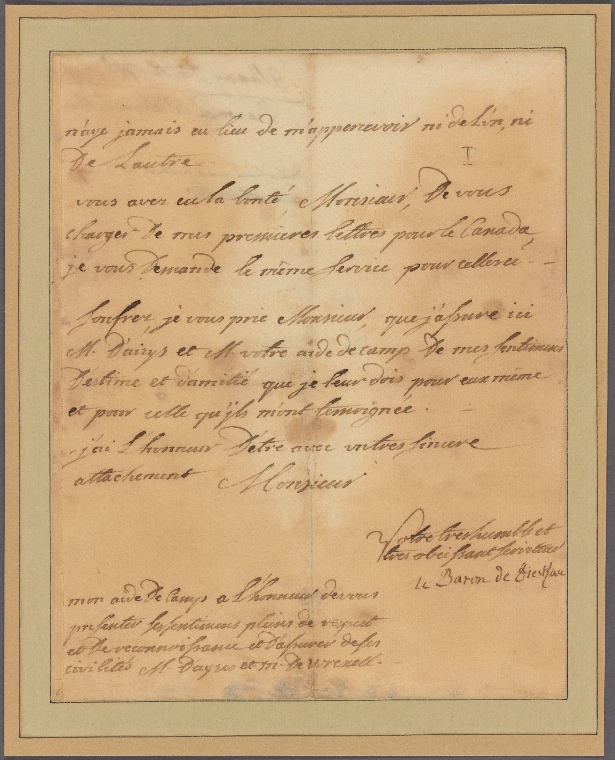 n'aye jamais eu lieu de m'appercevoir ni de l'un, ni
De Lautre
vous avez eu la bonté Monsieur, De vous
charger De mes premières lettres pour le Canada,
je vous Demande le même service pour celleci - -
souffrez, je vous prie Monsieur, que j'assure ici
M. D'airys et M. votre aide de camp De mes sentimens
Destime et d'amitié que je leur dois pour eux même
et pour celle qu'ils m'ont temoignée. -
j'ai L'honneur D'etre avec un tres sincere
attachement Monsieur
Votre tres humble et
tres obeissant serviteur
le Baron de Dieskau
mon aide De Camp a L'honneur de vous
presenter ses sentimens pleins de respect
et De reconnoissance et D'assurer de ses
civilités M. Dayrs et M. De